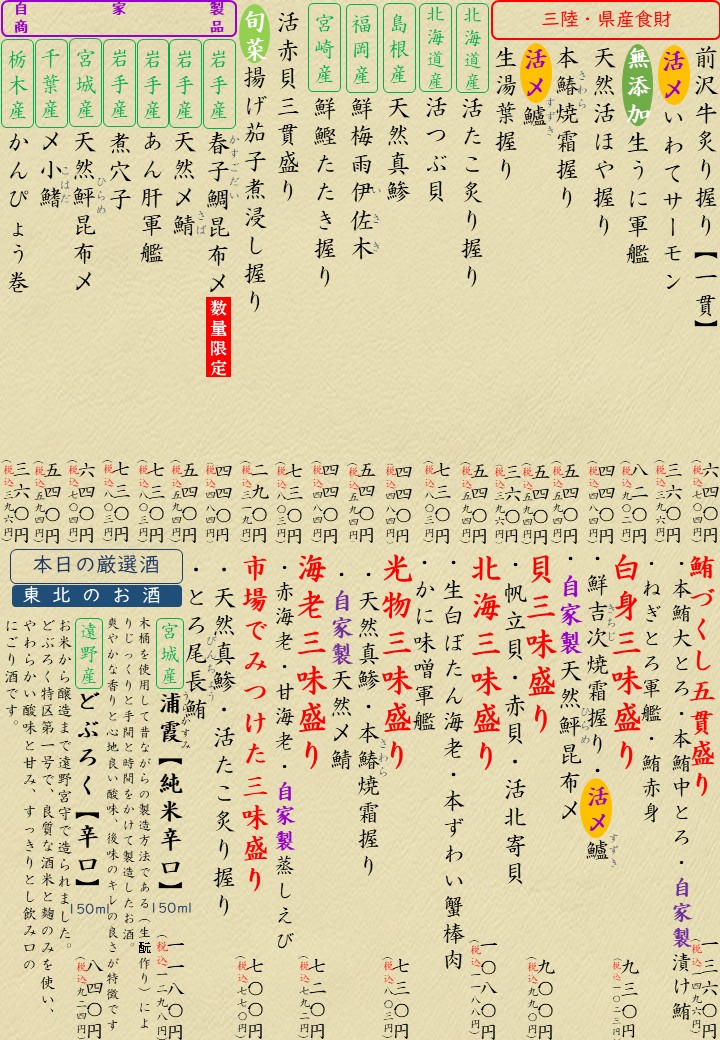 三陸・県産食財
前沢牛炙り握り【一貫】
六四〇円
(税込七〇四円)
活〆いわてサーモン
三六〇円
(税込三九六円)
無添加生うに軍艦
八二〇円
(税込九〇二円)
天然活ほや握り
四四〇円
(税込四八四円)
本鰆焼霜握り
さわら
五四〇円
(税込五九四円)
活〆鱸
すずき
五四〇円
(税込五九四円)
生湯葉握り
三六〇円
(税込三九六円)
北海道産
活たこ炙り握り
五四〇円
(税込五九四円)
北海道産
活つぶ貝
七三〇円
(税込八〇三円)
島根産
天然真鯵
四四〇円
(税込四八四円)
福岡産
鮮梅雨伊佐木
いさき
五四〇円
(税込五九四円)
宮崎産
鮮鰹たたき握り
四四〇円
(税込四八四円)
活赤貝三貫盛り
七三〇円
(税込八〇三円)
旬菜揚げ茄子煮浸し握り
二九〇円
(税込三一九円)
自家製商品
岩手産
春子鯛昆布〆数量限定
かすごだい
四四〇円
(税込四八四円)
岩手産
天然〆鯖
さば
五四〇円
(税込五九四円)
岩手産
あん肝軍艦
七三〇円
(税込八〇三円)
岩手産
煮穴子
七三〇円
(税込八〇三円)
宮城産
天然鮃昆布〆
ひらめ
六四〇円
(税込七〇四円)
千葉産
〆小鰭
こはだ
五四〇円
(税込五九四円)
栃木産
かんぴょう巻
三六〇円
(税込三九六円)
鮪づくし五貫盛り
・本鮪大とろ・本鮪中とろ・自家製漬け鮪
・ねぎとろ軍艦・鮪赤身
一三六〇円
(税込一四九六円)
白身三味盛り
・鮮吉次焼霜握り・活〆鱸
きちじ
すずき
・自家製天然鮃昆布〆
ひらめ
九三〇円
(税込一〇二三円)
貝三味盛り
・帆立貝・赤貝・活北寄貝
九〇〇円
(税込九九〇円)
北海三味盛り
・生白ぼたん海老・本ずわい蟹棒肉
・かに味噌軍艦
一〇八〇円
(税込一一八八円)
光物三味盛り
・天然真鯵・本鰆焼霜握り
さわら
・自家製天然〆鯖
七三〇円
(税込八〇三円)
海老三味盛り
・赤海老・甘海老・自家製蒸しえび
七二〇円
(税込七九二円)
市場でみつけた三味盛り
・天然真鯵・活たこ炙り握り
・とろ尾長鮪
びんちょう
七〇〇円
(税込七七〇円)
本日の厳選酒
東北のお酒
宮城産
浦霞【純米辛口】
うらかすみ
150ml
一一八〇円
(税込一二九八円)
木桶を使用して昔ながらの製造方法である(生酛作り)によ
りじっくりと手間と時間をかけて製造したお酒。
爽やかな香りと心地良い酸味、後味のキレの良さが特徴です
遠野産
どぶろく【辛口】
150ml
八四〇円
(税込九二四円)
お米から醸造まで遠野宮守で造られました。
どぶろく特区第一号で、良質な酒米と麹のみを使い、
やわらかい酸味と甘み、すっきりとし飲み口の
にごり酒です。